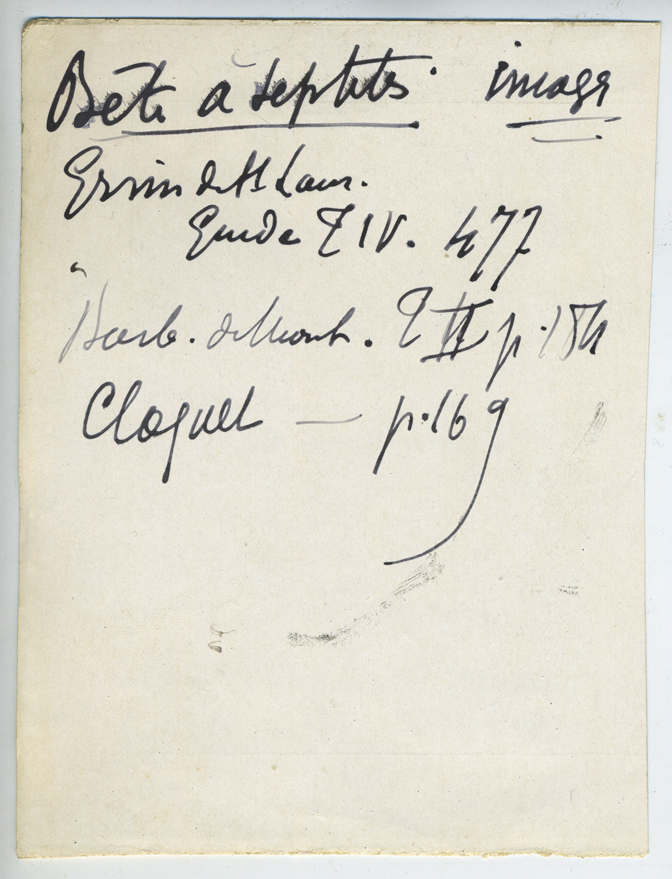 Bête à sept têtes image
Grim de St Laur.
Guide T IV. 477
Barb. de Mont. T II p. 184
Cloquet — p. 169